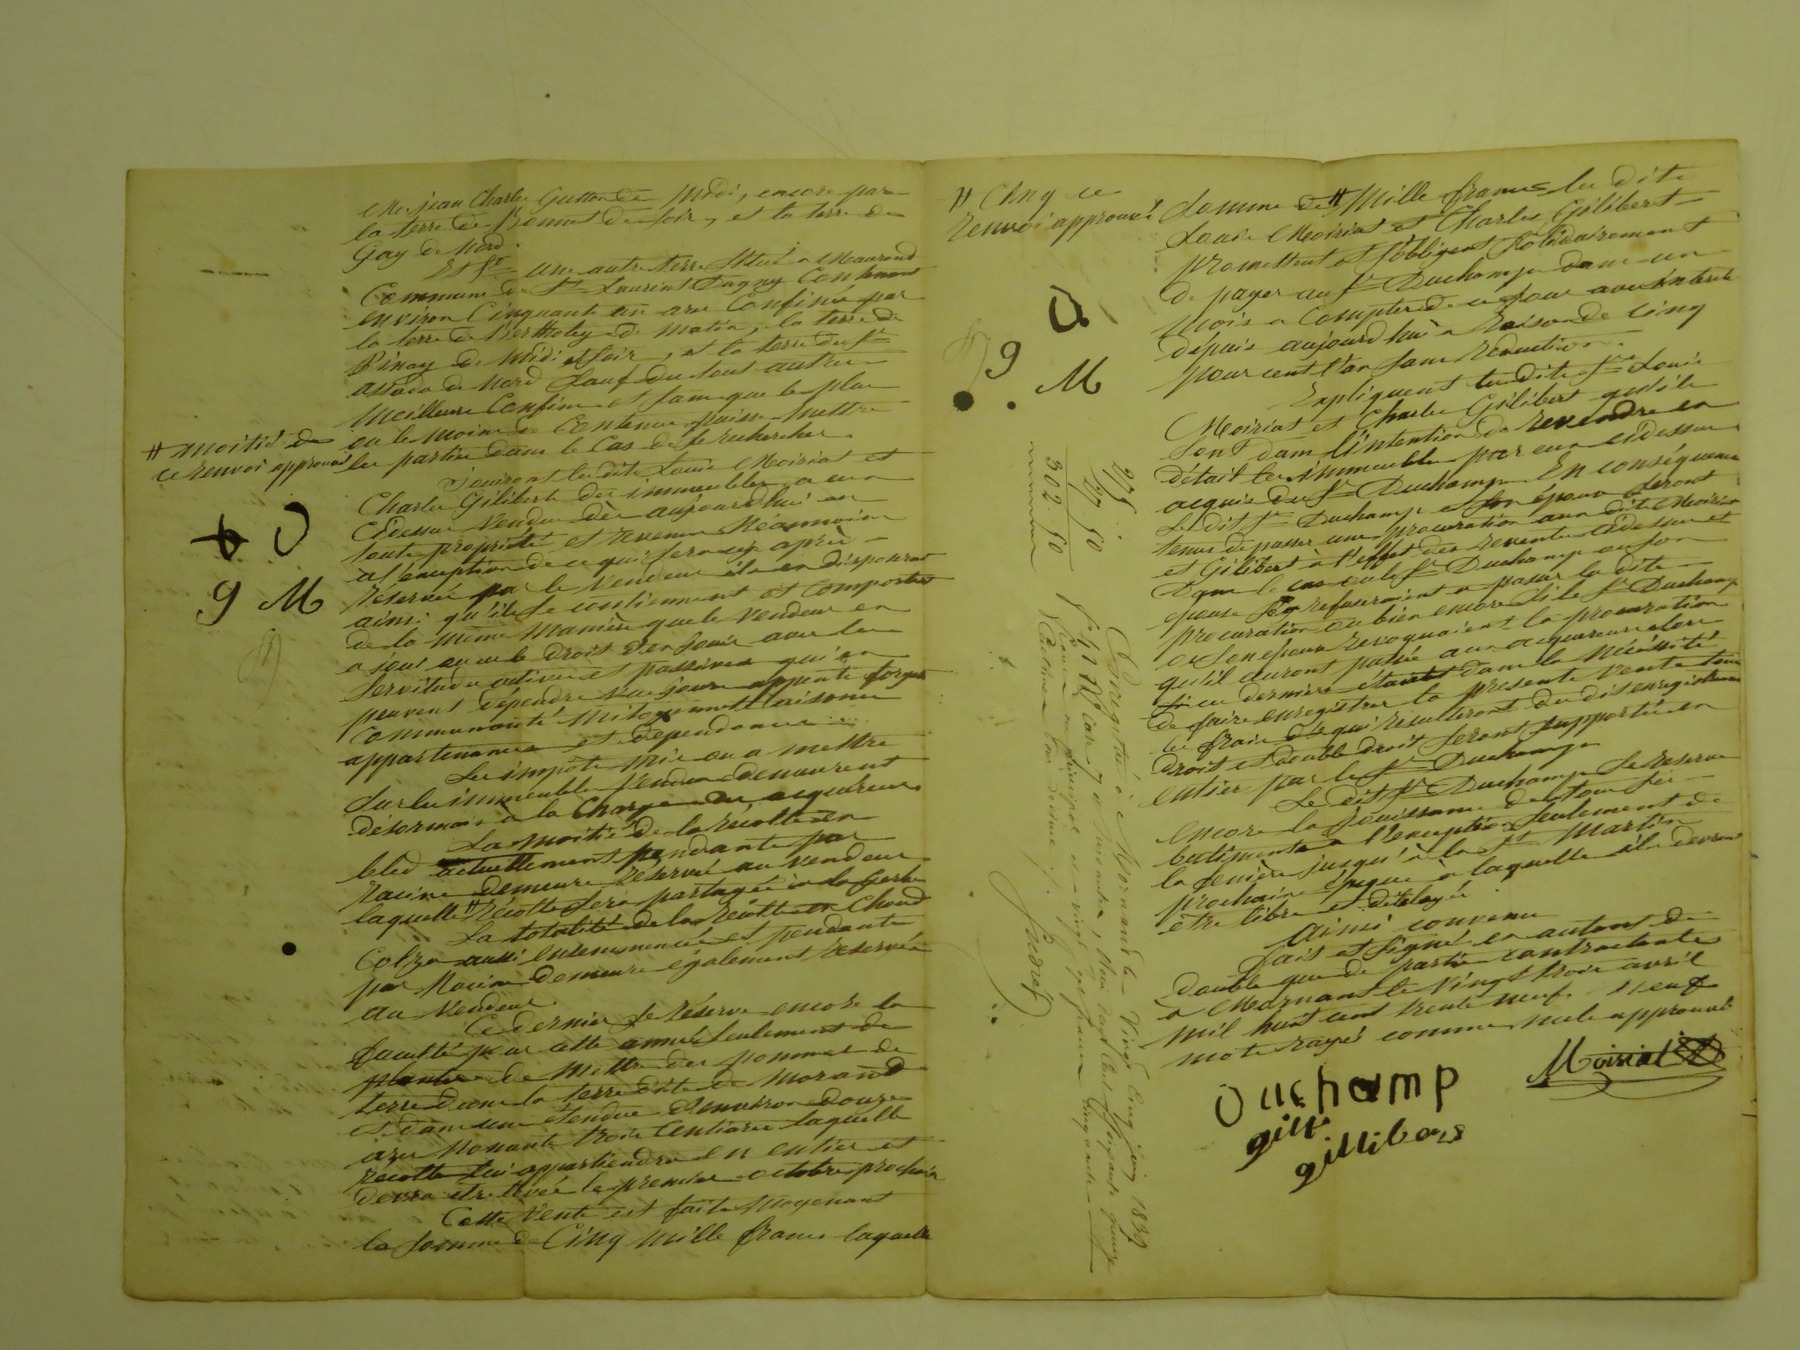 Mr jean Charles Gutton de Midi, encore par
la terre de Bonnet de soir, et la terre de
Gay de Nord.
Et 8° une autre terre située a Maurand
Commune de St Laurent d'agny Contenant
environ Cinquante un are Confinée par
la terre de Bertholey de matin, la terre de
Pinay de Midi et soir, et la terre du Sr
de Nord Sauf du tout autres
Meilleurs Confins et sans que le plus
ou le moins de Contenue puisse mettre
les parties dans le Cas de se rechercher
Jouiront les dits Louis Moiriat et
Charles Gilibert des immeubles a eux
Cidessus vendus dès aujourd'hui en
toute propriété et revenus Néanmoins
a l'exception de ce qui sera ci après
réservé par le Vendeur ils en disposeront
ainsi qu'ils se contiennent et Comportent
de la même manière que le vendeur en
a joui avec le droit d'en jouir avec les
Servitudes actives et passives qui en
peuvent dépendre
Communauté Mitoyenneté aisances
appartenances et dépendances
Les impôts mis ou a mettre
Sur les immeubles vendus demeurent
désormais a la Charge des acquéreurs
La moitié de la récolte en
bled actuellement pendante par
racine demeure réservée au vendeur
laquelle # récolte sera partagée a la gerbe
La totalité de la récolte en Choud
Colza aussi ensemmencée et pendante
par Racine demeure également réservée
au Vendeur.
Ce dernier se réserve encore la
faculté pour cette année seulement de
planter de mettre des pommes de
terre dans la terre dite de Morand
et dans une étendue d'environ douze
ares Nonante trois Centiares laquelle
récolte lui appartiendra en entier et
devra être levée le premier octobre prochain
Cette Vente est faite Moyenant
la somme de Cinq mille francs laquelle
# moitié de
ce renvoi approuvé
D
g M
# Cinq ce
renvoi approuvé
D
g M
Somme de # Mille francs les dits
Louis Moiriat et Charles Gilibert
promettent et s'obligent solidairement
de payer au Sr Duchamp dans un
mois a Compter de ce jour avec intérêts
depuis aujourd'hui a Raison de Cinq
pour cent l'an sans réduction.
Expliquent les dits Srs Louis
Moiriat et Charles Gilibert qu'ils
sont dans l'intention de revendre en
détail les immeubles par eux cidessus
acquis du Sr Duchamp En conséquence
Le dit Sr Duchamp et son épouse seront
tenus de passer une procuration aux dits Moiriat
et Gilibert à l'effet des reventes cidessus et
dans le cas ou le Sr Duchamp ou son
épouse se refuseraient a passer la dite
procuration ou bien encore si le Sr Duchamp
et son épouse revoquaient la procuration
qu'ils auront passée aux acquereurs alors
si ces derniers étaient dans la nécessité
de faire enregistrer la présente vente tous
les frais qui résulteront du dit enregistrement
droit et double droit seront supportés en
entier par le Sr Duchamp
Le dit Sr Duchamp se réserve
encore la jouissance de tous les
batiments a l'exception seulement de
la fenière jusqu'à la St Martin
prochaine époque a laquelle ils devront
être libres et
Ainsi convenu
fait et signé en autant de
double que de parties contractantes
a Mornant le Vingt trois avril
mil huit cent trente neuf. Neuf
mots rayés comme nuls approuvé
Moiriat
Duchamp
gilli
gillibers
275.
27 50
302. 50
Enregistré à Mornant le Vingt Cinq juin 1839
Reçu
Décime